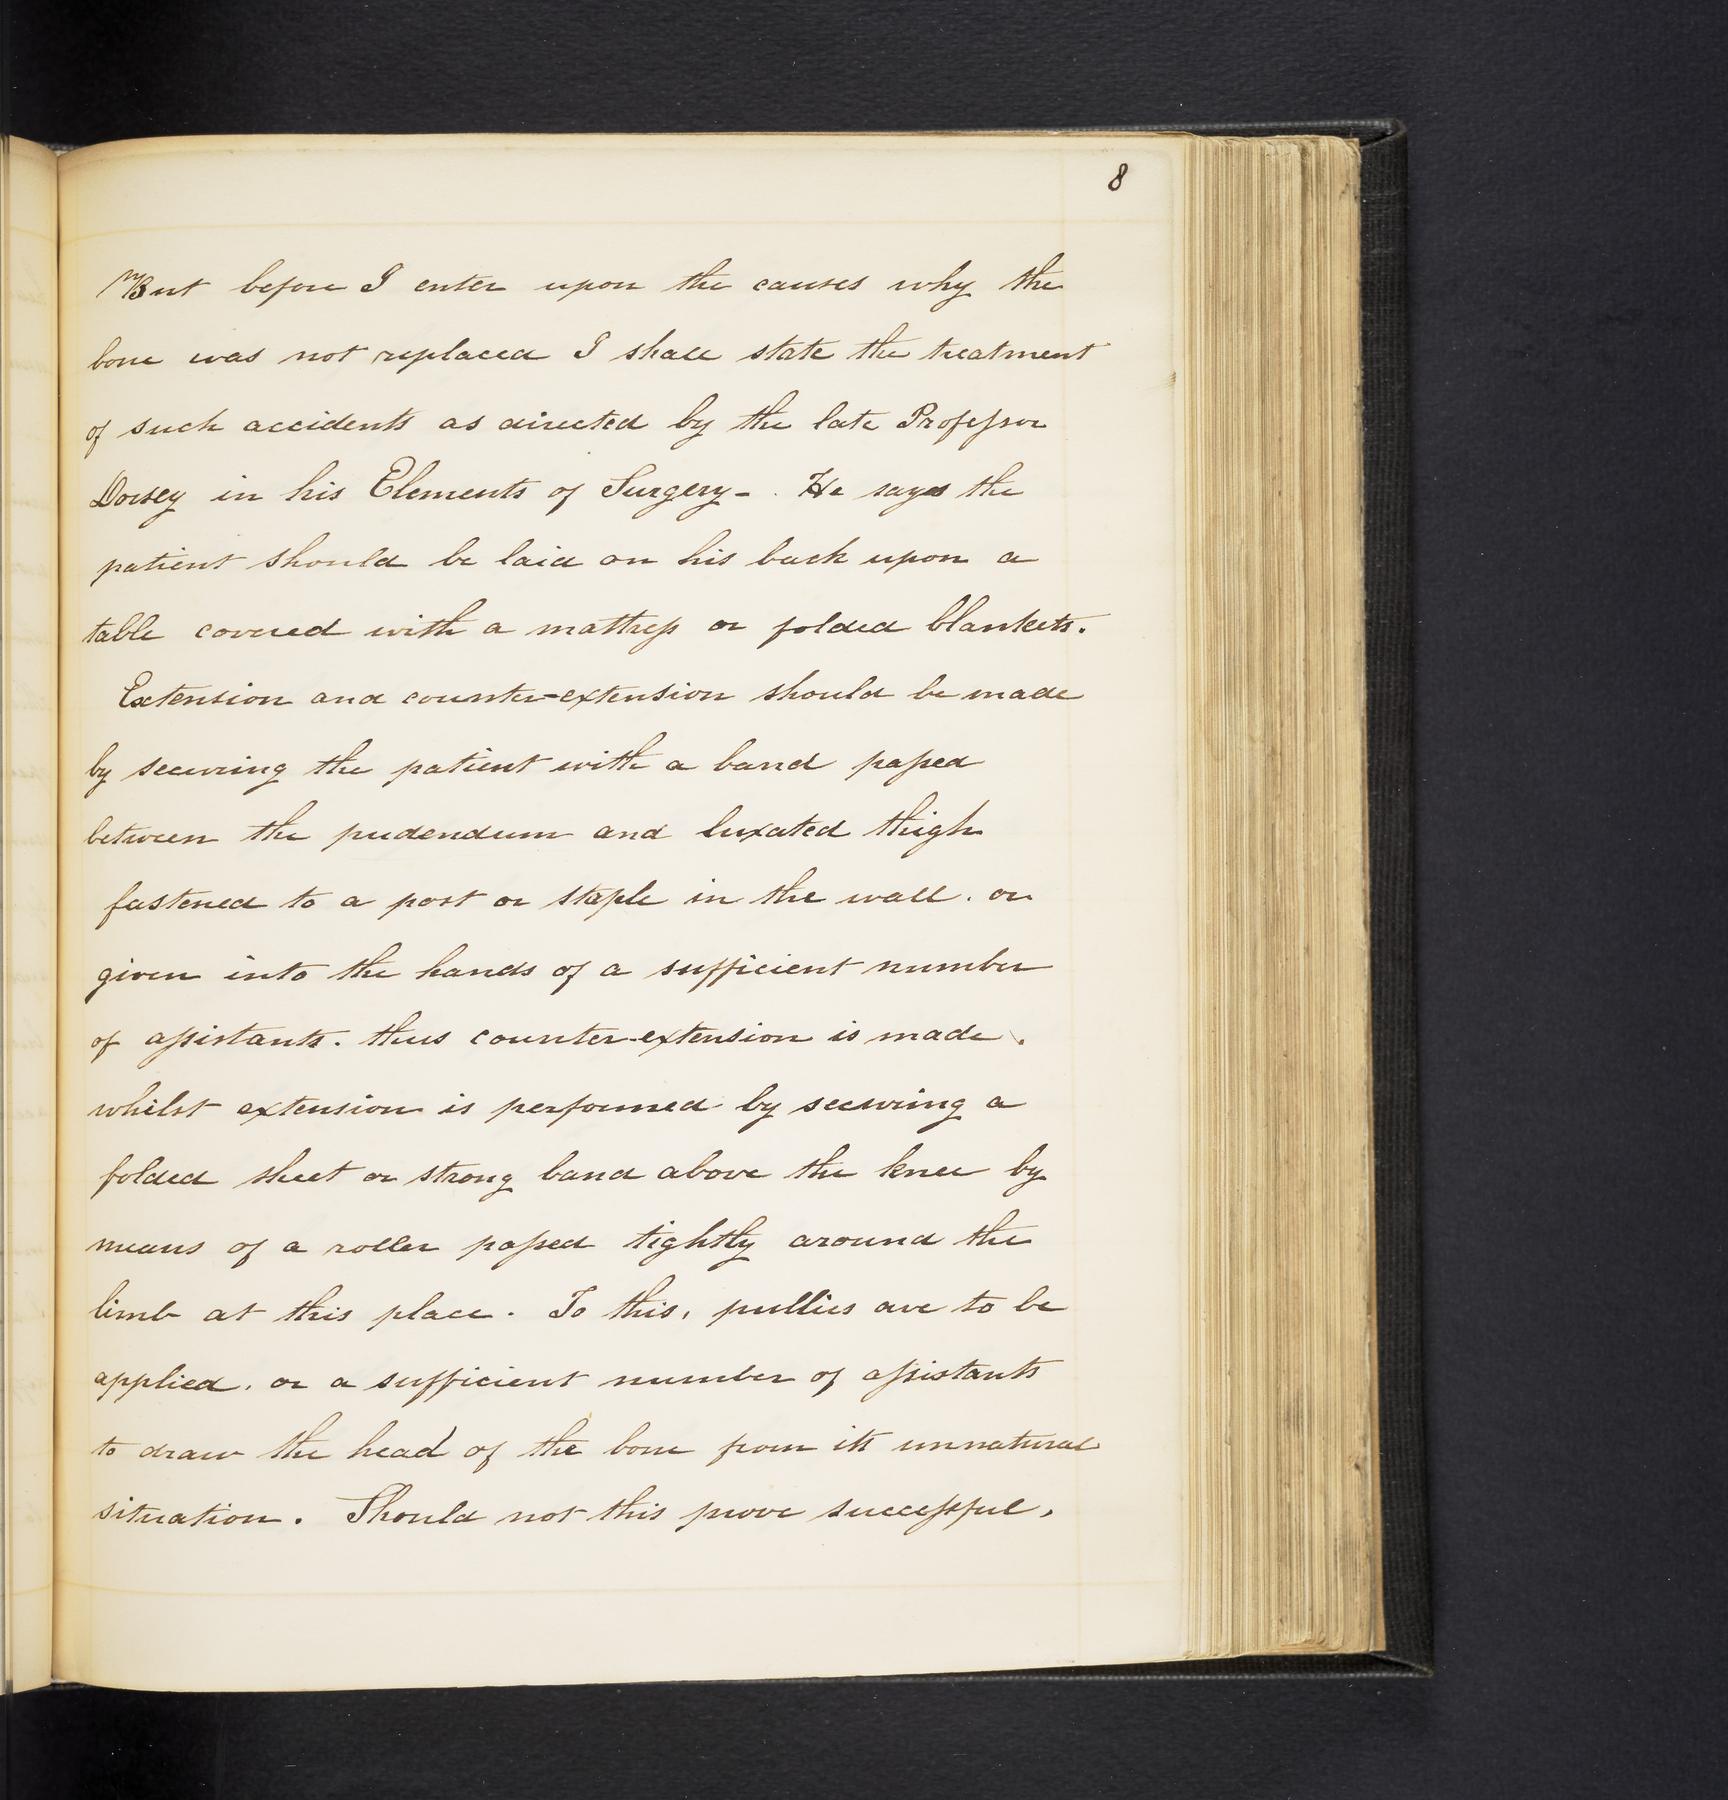 8
But before I enter upon the causes why the
bone was not replaced I shall state the treatment
of such accidents as directed by the late Professor
Dorsey in his Elements of Surgery - . He says the
patient should be laid on his back upon a
table covered with a mattress or folded blankets.
Extension and counter-extension should be made
by securing the patient with a band passed
between the pudendum and luxated thigh
fastened to a post or staple in the wall. or
given into the hands of a sufficient number
of assistants. thus counter-extension is made.
whilst extension is performed by securing a
folded sheet or strong band above the knee by
means of a roller passed tightly around the
limb at this place. To this, pullies are to be
applied, or a sufficient number of assistants
to draw the head of the bone from its unnatural
situation. Should not this prove successful,